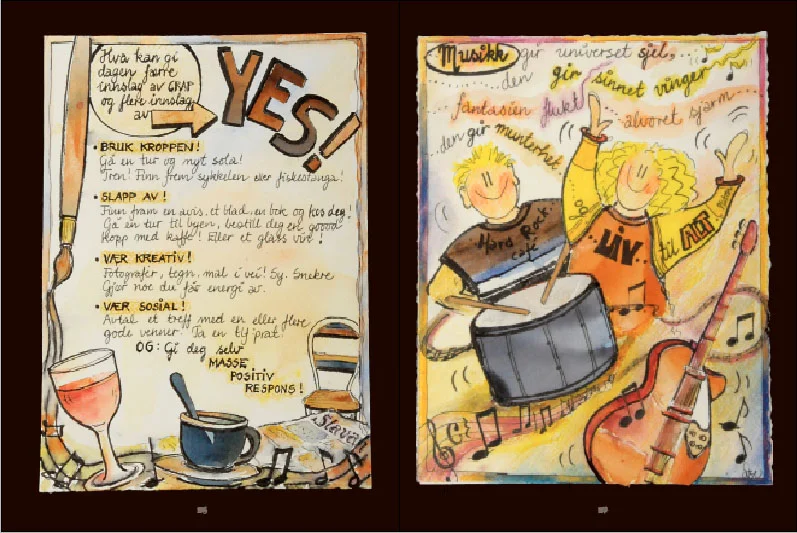 Hva kan gi
dagen færre
innslag av GRAP
og flere innslag
av
YES!
• BRUK KROPPEN!
Gå en tur og nyt sola!
Tren! Finn frem sykkelen eller fiskestanga!
• SLAPP AV!
Finn fram en avis, et blad, en bok og kos deg!
Gå en tur til byen, bestill deg en goood
kopp med kaffe! Eller et glass vin!
• VÆR KREATIV!
Fotografér, tegn, mal i vei! Sy. Snekre
Gjør noe du får energi av.
• VÆR SOSIAL!
Avtal et treff med en eller flere
gode venner. Ta en tlf prat!
OG: Gi deg selv
MASSE
POSITIV
RESPONS!
Slava
Musikk gir universet sjel,...
......den gir sinnet vinger
...fantasien flukt
...alvoret sjarm...
...den gir munterhet
Hard Rock
café
og
LIV
til ALT